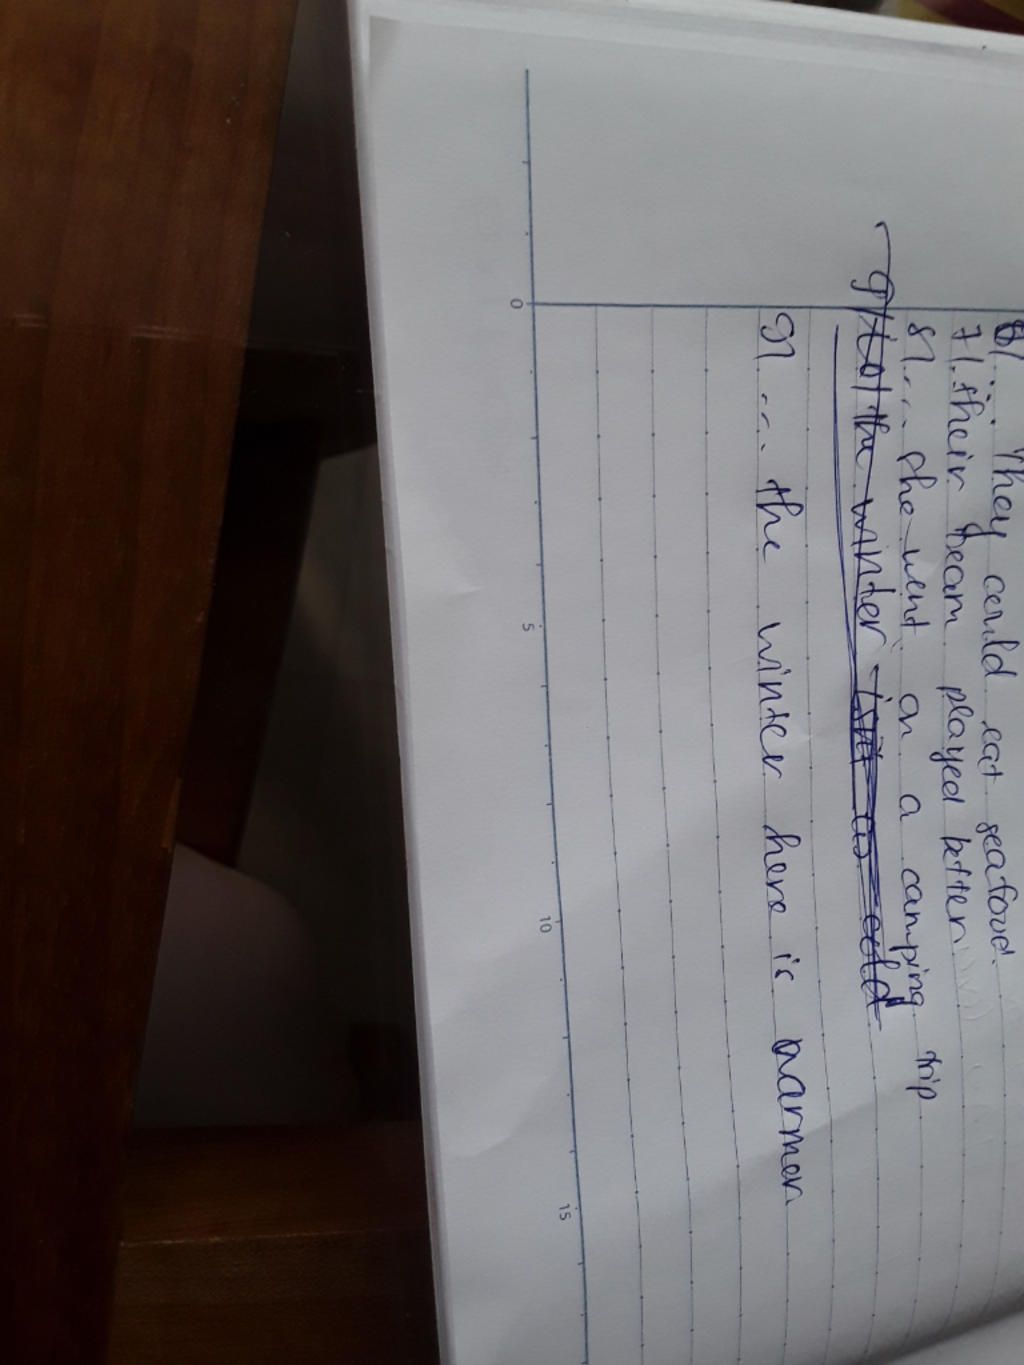 6) They could eat seafood.
7) their team played better
8) ... she went on a camping trip
9) the winter isn't as cold
9) ... the winter here is warmer
0 5 10 15